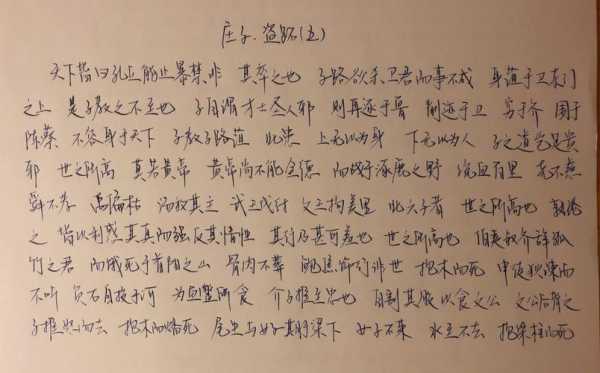 庄子·盗跖(五)
天下皆曰孔丘能止暴禁非 其卒之也 子路欲杀卫君而事不成 身菹于卫东门
之上 是子教之不至也 子自谓才士圣人邪 则再逐于鲁 削迹于卫 穷于齐 围于
陈蔡 不容身于天下 子教子路菹 此患 上无以为身 下无以为人 子之道岂足贵
邪 世之所高 莫若黄帝 黄帝尚不能全德 而战于涿鹿之野 流血百里 尧不慈
舜不孝 禹偏枯 汤放其主 武王伐纣 文王拘羑里 此六子者 世之所高也 孰论
之 皆以利惑其真而强反其情性 其行乃甚可羞也 世之所高也 伯夷叔齐辞孤
竹之君 而饿死于首阳之山 骨肉不葬 鲍焦饰行非世 抱木而死 申徒狄谏而
不听 负石自投于河 为鱼鳖所食 介子推至忠也 自割其股以食文公 文公后背之
子推怒而去 抱木而燔死 尾生与女子期于梁下 女子不来 水至不去 抱梁柱而死